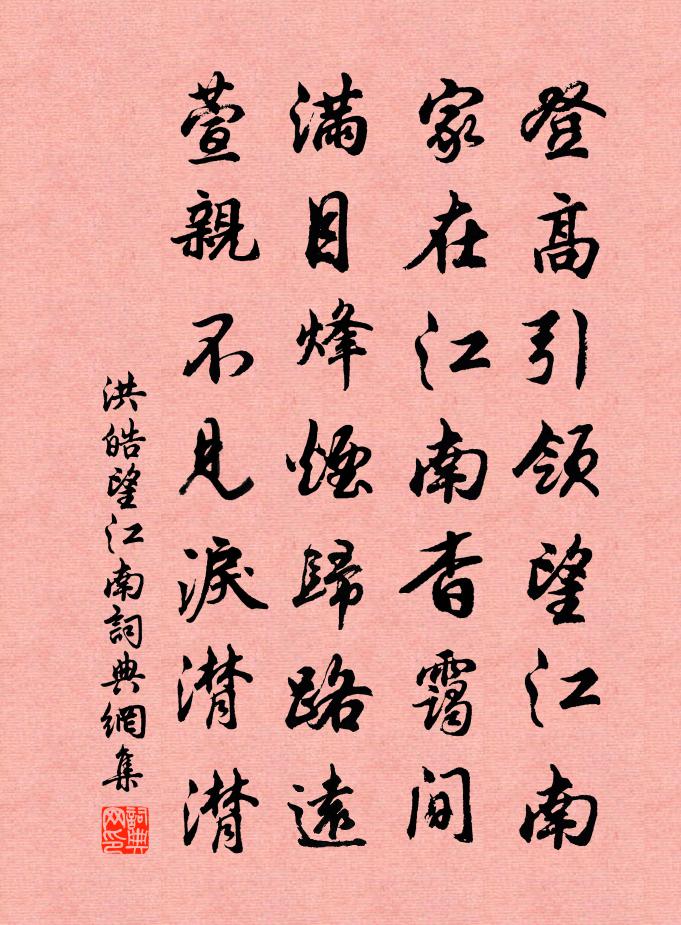 登高引領望江南
家在江南杳靄間
滿目烽煙歸路遠
萱親不見淚潸潸
洪皓望江南詞典網集
詞典网印